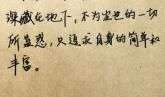 深藏在地下，不为尘世的一切
所蛊惑，只追求自身的简单和
丰富。